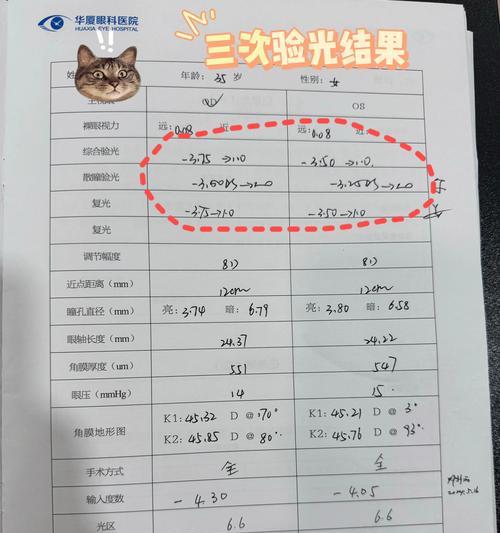 华厦眼科医院
HUAXIA EYE HOSPITAL
三次验光结果
姓 年龄: 35 岁 性别: 女
OD OS
裸眼视力 远: 0.08 近 远: 0.08 近
综合验光 -3.75→1.0 -3.50→1.0
散瞳验光 -3.50DS→1.0 -3.25DS→1.0
复光 -3.75→1.0 -3.50→1.0
复光
调节幅度 8D 8D
近点距离 (mm) 12cm 12cm
瞳孔直径 (mm) 亮: 3.74 暗: 6.79 亮: 3.80 暗: 6.58
眼轴长度 (mm) 24.37 24.22
角膜厚度 (um) 551 547
眼压 (mmHg) 14 15
角膜地形图
K1: 45.32 D @ 170° K1: 45.21 D @ 3°
K2: 45.85 D @ 80° K2: 45.76 D @ 93°
手术方式 全 全
输入度数 -4.30 -4.05
光区 6.6 6.6